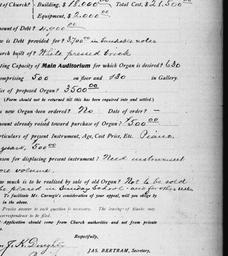 of Church? Building, $ 18.000.00 Total Cost, $21.500
Equipment, $2.000.00
mount of Debt? 4,000.00
is Debt provided for? 3700 in Subscription notes
urch built of? White pressed brick
ting Capacity of Main Auditorium for which Organ is desired? 630
omprising 500 on floor and 130 in Gallery.
of proposed Organ? 3500.00
(Form should not be returned till this has been required into and settled.)
new Organ been ordered? No Date of order? -
mount already raised toward purchase of Organ? $500.00
rticulars of present Instrument, Age, Cost Price, Etc. Piano,
years, 500.00
eason for displacing present instrument? Need instrument
ore volume.
ow much is to be realized by sale of old Organ? Not to be sold
be placed in Sunday School
To facilitate Mr. Carnegie's consideration of your appeal, will you please fill
in the above.
Precise answer to each question is necessary. The leaving of blanks may
correspondence to be filed.
Application should come from Church authorities and on from private
Respectfully,
JAS. BERTRAM, Secretary,